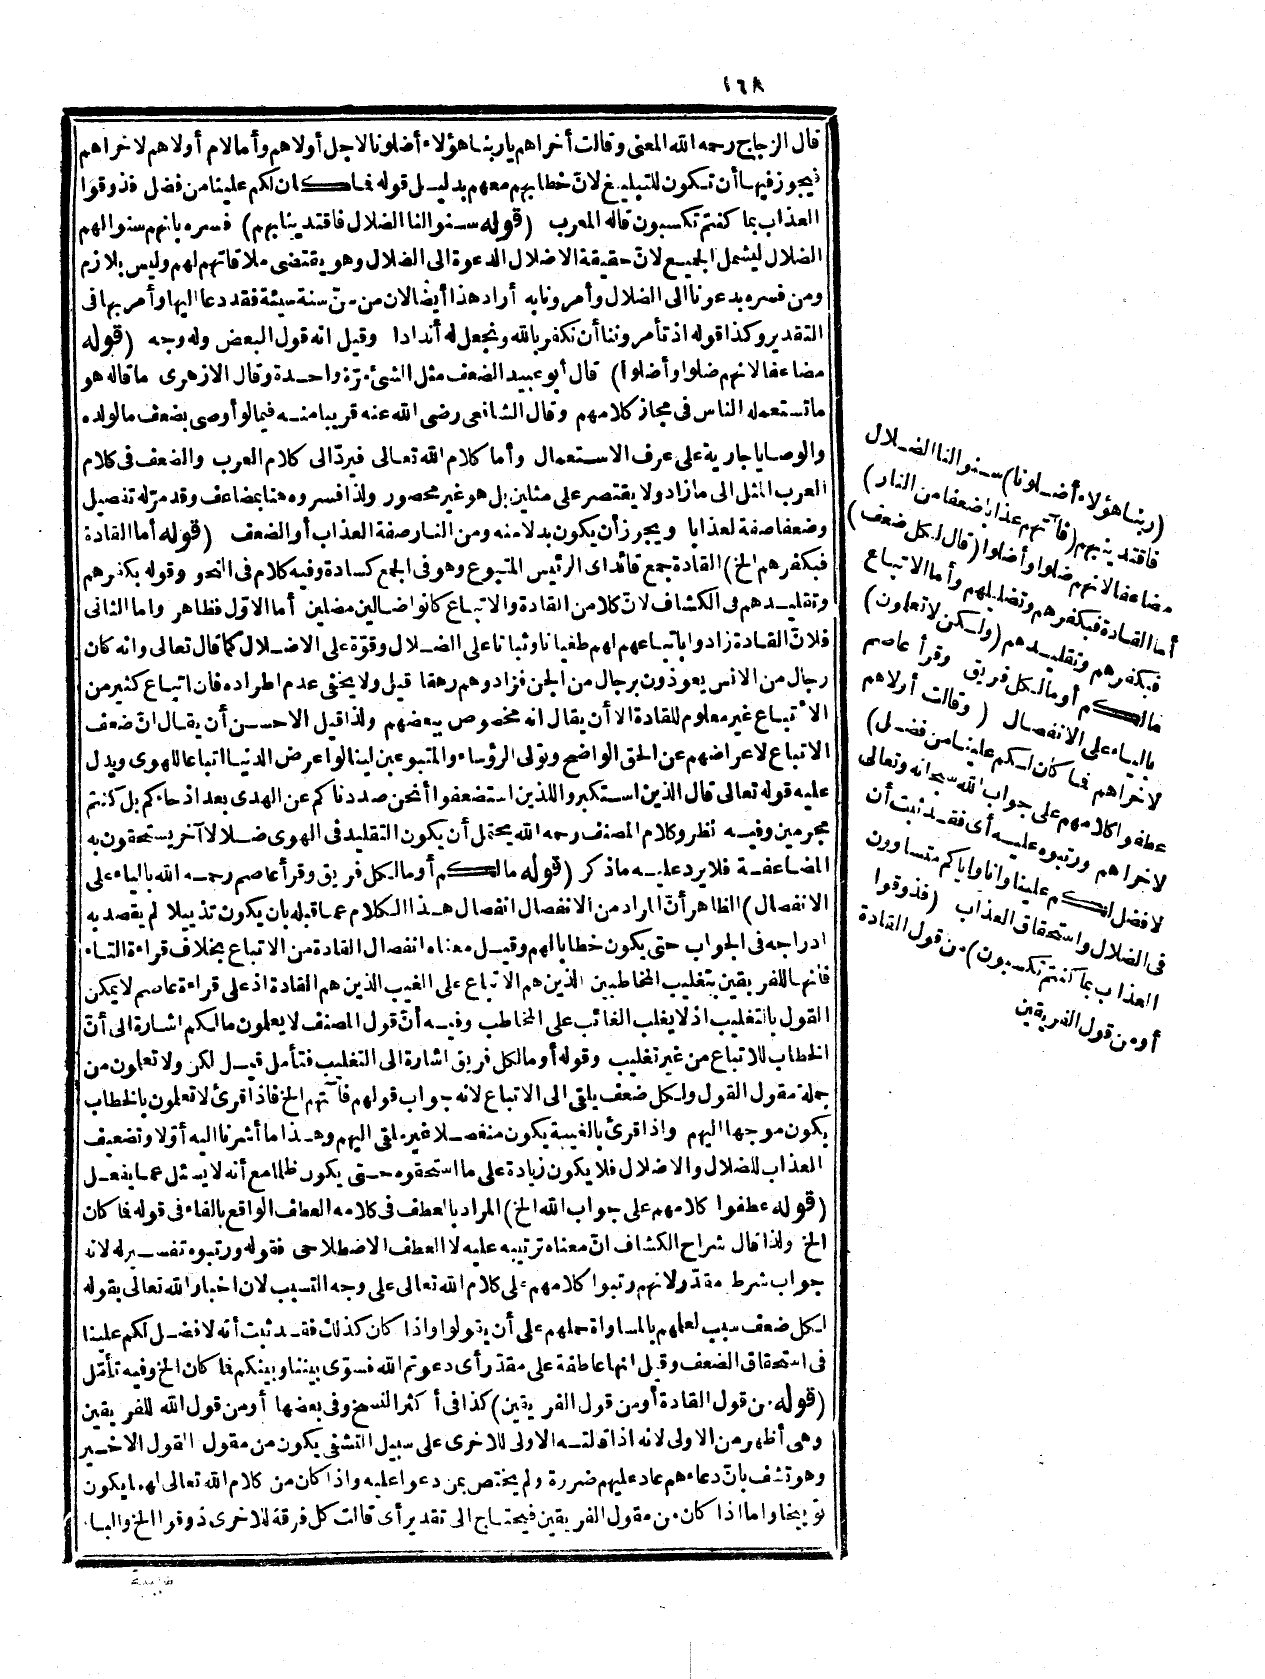 ١٦٨
قال الزجاج رحمه الله المعنى وقالت أخراهم يا ربنا هؤلاء أضلونا لاجل أولاهم وأما لام أولاهم لاخراهم
فيجوز فيها أن تكون للتبليغ لانّ خطابهم معهم بدليل قوله فما كان لكم علينا من فضل فذوقوا
العذاب بما كنتم تكسبون قاله المعرب (قوله سنوا لنا الضلال فاقتدينا بهم) فسره بانهم سنوا لهم
الضلال ليشمل الجميع لانّ حقيقة الاضلال الدعوة الى الضلال وهو يقتضى ملاقاتهم لهم وليس بلازم
ومن فسره بدعونا الى الضلال وأمرونا به أراد هذا أيضا لان من سنّ سنة سيئة فقد دعا اليها وأمر بها فى
التقدير وكذا قوله اذ تأمروننا أن نكفر بالله ونجعل له أندادا وقيل انه قول البعض وله وجه (قوله
مضاعفا لانهم ضلوا وأضلوا) قال أبو عبيد الضعف مثل الشئ مرّة واحدة وقال الازهرى ما قاله هو
ما تستعمله الناس فى مجاز كلامهم وقال الشافعى رضى الله عنه قريبا منه فيما لو أوصى بضعف ما لولده
والوصايا جارية على عرف الاستعمال وأما كلام الله تعالى فيردّ الى كلام العرب والضعف فى كلام
العرب المثل الى ما زاد ولا يقتصر على مثلين بل هو غير محصور ولذا فسروه هنا بمضاعف وقد مرّ له تفصيل
وضعفا صفة لعذابا ويجوز أن يكون بدلا منه ومن النار صفة العذاب أو الضعف (قوله أما القادة
فبكفرهم الخ) القادة جمع قائد اى الرئيس المتبوع وهو فى الجمع كسادة وفيه كلام فى النحو وقوله بكفرهم
وتقليدهم فى الكشاف لانّ كلا من القادة والاتباع كانوا ضالين مضلين أما الاوّل فظاهر واما الثانى
فلانّ القادة زادوا باتباعهم لهم طغيانا وثباتا على الضلال وقوّة على الاضلال كما قال تعالى وانه كان
رجال من الانس يعوذون برجال من الجن فزادوهم رهقا قيل ولا يخفى عدم اطراده فان اتباع كثير من
الاتباع غير معلوم للقادة الا أن يقال انه مخصوص ببعضهم ولذا قيل الاحسن أن يقال انّ ضعف
الاتباع لاعراضهم عن الحق الواضح وتولى الرؤساء والمتبوعين لينالوا عرض الدنيا اتباعا للهوى ويدل
عليه قوله تعالى قال الذين استكبروا للذين استضعفوا أنحن صددناكم عن الهدى بعد اذ جاءكم بل كنتم
مجرمين وفيه نظر وكلام المصنف رحمه الله يحتمل أن يكون التقليد فى الهوى ضلالا آخر يستحقون به
المضاعفة فلا يرد عليه ما ذكر (قوله ما لكم أو ما لكل فريق وقرأ عاصم رحمه الله بالياء على
الانفصال) الظاهر أنّ المراد من الانفصال انفصال هذا الكلام عما قبله بان يكون تذييلا لم يقصد به
ادراجه فى الجواب حتى يكون خطابا لهم وقيل معناه انفصال القادة من الاتباع بخلاف قراءة التاء
فانها للفريقين بتغليب المخاطبين الذين هم الاتباع على الغيب الذين هم القادة اذ على قراءة عاصم لا يمكن
القول بالتغليب اذ لا يغلب الغائب على المخاطب وفيه أنّ قول المصنف لا يعلمون ما لكم اشارة الى أنّ
الخطاب للاتباع من غير تغليب وقوله أو ما لكل فريق اشارة الى التغليب فتأمل قيل لكن ولا تعلمون من
جملة مقول القول ولكل ضعف يلقى الى الاتباع لانه جواب قولهم فآتهم الخ فاذا قرئ لا تعلمون بالخطاب
يكون موجها اليهم واذا قرئ بالغيبة يكون منفصلا غير ملقى اليهم وهذا ما أشرنا اليه أوّلا وتضعيف
العذاب للضلال والاضلال فلا يكون زيادة على ما استحقوه حتى يكون ظلما مع أنه لا يسئل عما يفعل
(قوله عطفوا كلامهم على جواب الله الخ) المراد بالعطف فى كلامه العطف الواقع بالفاء فى قوله فما كان
الخ ولذا قال شراح الكشاف انّ معناه ترتيبه عليه لا العطف الاصطلاحى فقوله ورتبوه تفسير له لانه
جواب شرط مقدّر ولانهم رتبوا كلامهم على كلام الله تعالى على وجه التسبب لان اخبار الله تعالى بقوله
لكل ضعف سبب لعلمهم بالمساواة حملهم على أن يقولوا واذا كان كذلك فقد ثبت أنه لا فضل لكم علينا
فى استحقاق الضعف وقيل انها عاطفة على مقدّر أى دعوتم الله فسوّى بيننا وبينكم فما كان الخ وفيه تأمّل
(قوله من قول القادة أو من قول الفريقين) كذا فى أكثر النسخ وفى بعضها أو من قول الله للفريقين
وهى أظهر من الاولى لانه اذا قالته الاولى للاخرى على سبيل التشفى يكون من مقول القول الاخير
وهو تشف بانّ دعاءهم عاد عليهم ضررة ولم يختص بمن دعوا عليه واذا كان من كلام الله تعالى لهما يكون
توبيخا واما اذا كان من مقول الفريقين فيحتاج الى تقدير أى قالت كل فرقة للاخرى ذوقوا الخ والباء
(ربنا هؤلاء أضلونا) سنوا لنا الضلال
فاقتدينا بهم (فآتهم عذابا ضعفا من النار)
مضاعفا لانهم ضلوا وأضلوا (قال لكل ضعف)
أما القادة فبكفرهم وتضليلهم وأما الاتباع
فبكفرهم وتقليدهم (ولكن لا تعلمون)
ما لكم أو ما لكل فريق وقرأ عاصم
بالياء على الانفصال (وقالت أولاهم
لاخراهم فما كان لكم علينا من فضل)
عطفوا كلامهم على جواب الله سبحانه وتعالى
لاخراهم ورتبوه عليه أى فقد ثبت أن
لا فضل لكم علينا وانا واياكم متساوون
فى الضلال واستحقاق العذاب (فذوقوا
العذاب بما كنتم تكسبون) من قول القادة
أو من قول الفريقين